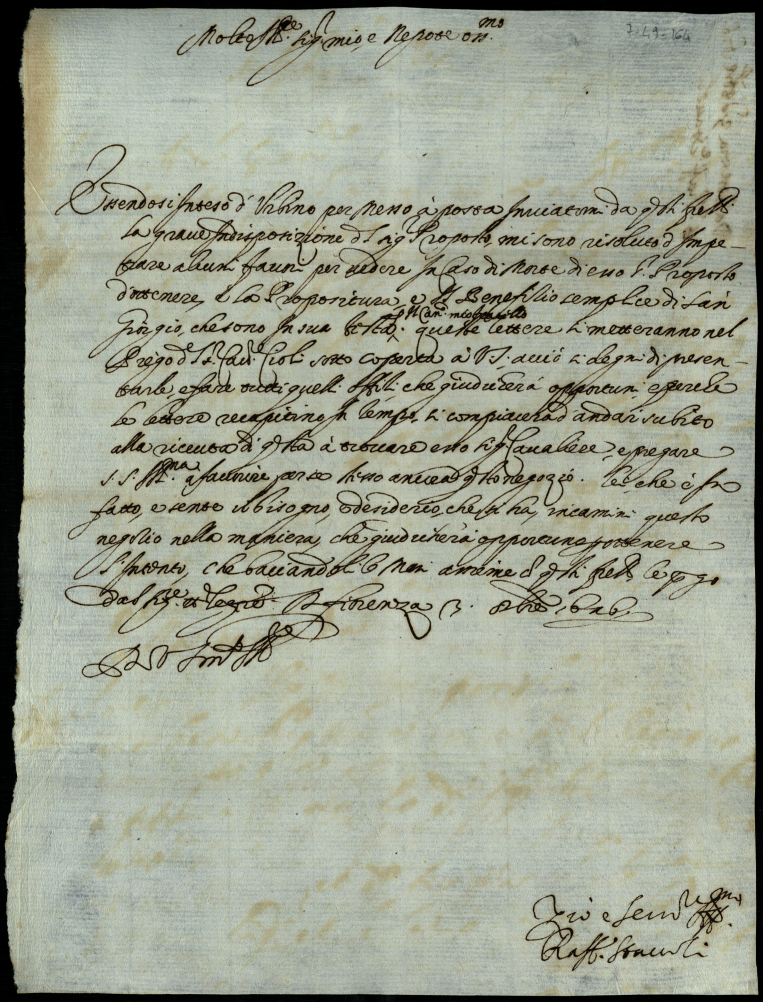 Molto Ill.re sig.r mio, e Nepote oss.mo
7-49-164
Essendosi Inteso d' Urbino per messo à posta Inviatomi da q.sti
la grave Indisposizione d l sig. Proposto, mi sono risoluto d' Impe-
trare alcuni favori per vedere In Caso di Morte di esso S.r Proposto
d'ottenere, è la Propositura, e il Benefitio semplice di san
Giorgio, che sono In sua testa, p il Can. mio fratello queste lettere si metteranno nel
Prego d l S.r Cav. Cioli sotto coperta a V S, acciò si degni di presen-
tarle e fare tutti quelli offitii che giudicherà opportuni, e perche
le lettere recapitino In tempo, si compiacerà d'andar subito
alla riceuta di q.sta à trovare esso sig.r Cavaliere, e pregare
S. S. Ill.ma a favorire per se stesso ancora q.sto negozio. lei, che è In
fatto, e sente il bisogno, e desiderio, che si ha, incamini questo
negotio nella maniera, che giudicherà opportuna p ottenere
l'Intento, che baciandoli le Mani a nome d q.sti le p go
dal S.re ogni allegrez.a Di fiorenza 3. 8bre 1626
Di V S molto Ill.re
Zio e Ser.re
Raff. Staccoli